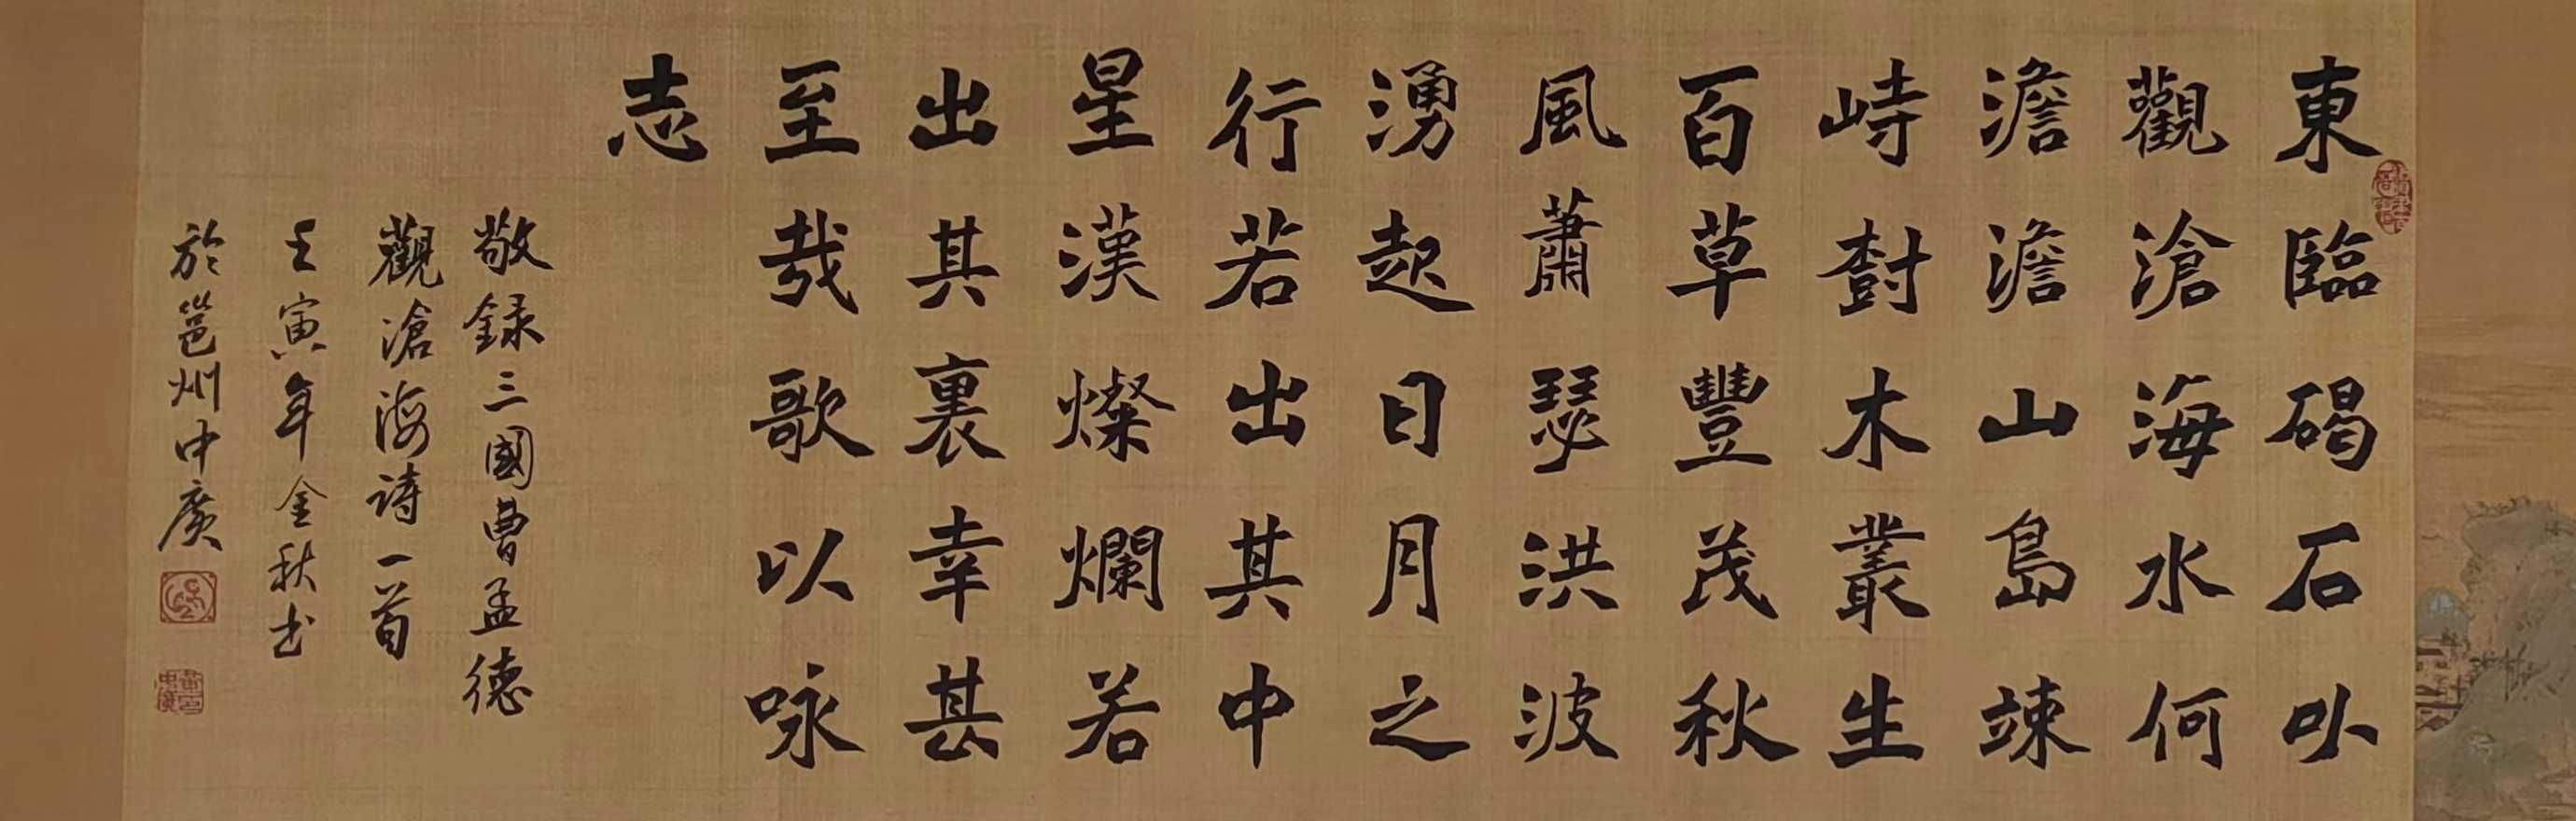 東臨碣石㕥
觀滄海水何
澹澹山島竦
峙樹木叢生
百草豐茂秋
風蕭瑟洪波
湧起日月之
行若出其中
星漢燦爛若
出其裏幸甚
至哉歌以咏
志
敬録三國曹孟德
觀滄海詩一首
壬寅年金秋书
於邕州中廣